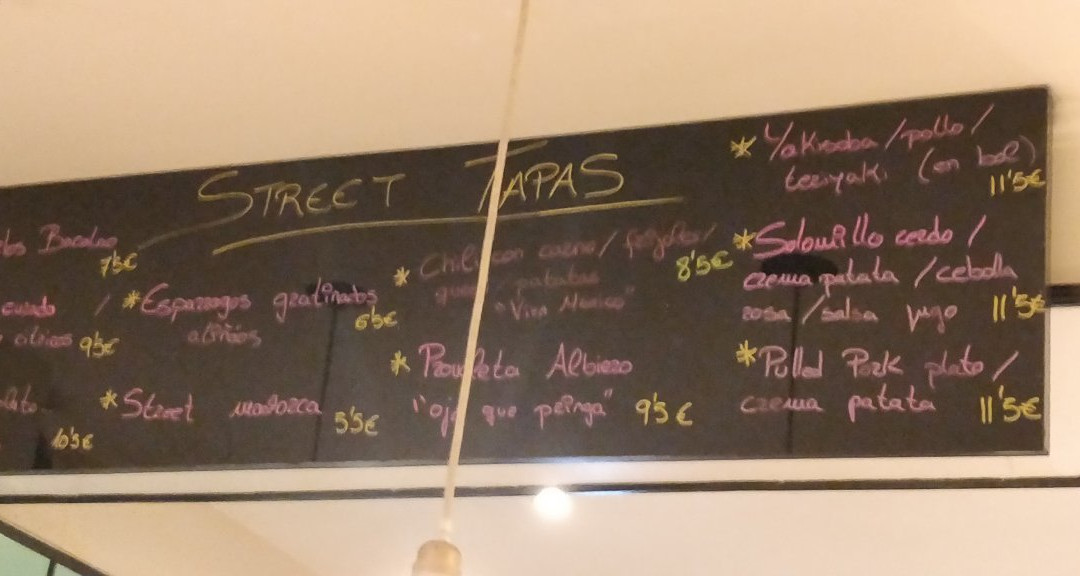 STREET TAPAS
Bacalao
7'5€
/
9'5€
10'5€
*Esparragos gratinados
6'5€
aliños
*Street mazorca
5'5€
* Chili con carne / frijoles /
8'5€
patatas
"Viva Mexico"
* Provoleta Albiezo
"ojo que pringa" 9'5€
* Yakisoba / pollo /
teriyaki (en bol)
11'5€
*Solomillo cerdo /
crema patata / cebolla
rosa / salsa jugo 11'5€
*Pulled Pork plato /
crema patata 11'5€